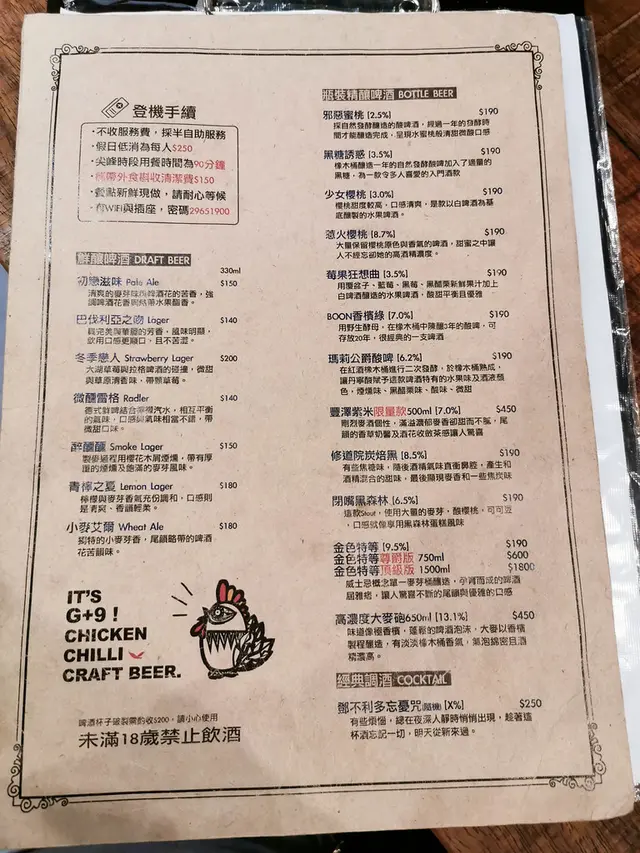 登機手續
·不收服務費，採半自助服務
·假日低消為每人$250
·尖峰時段用餐時間為90分鐘
·攜帶外食斟收清潔費$150
·餐點新鮮現做，請耐心等候
·有WiFi與插座，密碼29651900
鮮釀啤酒 DRAFT BEER
330ml
初戀滋味 Pale Ale $150
清爽的麥芽味與啤酒花的苦香，強
調啤酒花香與熱帶水果酯香。
巴伐利亞之吻 Lager $140
具完美與華麗的芳香，風味明顯，
飲用口感更順口，且不苦澀。
冬季戀人 Strawberry Lager $200
大湖草莓與拉格啤酒的碰撞，微甜
與草原清香味，帶顆草莓。
微醺雷格 Radler $140
德式鮮啤結合檸檬汽水，相互平衡
的氣味，口感與氣味相當不錯，帶
微甜口味。
醉醺醺 Smoke Lager $150
製麥過程用櫻花木屑煙燻，帶有厚
重的煙燻及飽滿的麥芽風味。
青檸之夏 Lemon Lager $180
檸檬與麥芽香氣充份調和，口感則
是清爽、香韻輕柔。
小麥艾爾 Wheat Ale $180
獨特的小麥芽香，尾韻略帶的啤酒
花苦韻味。
IT'S
G+9 !
CHICKEN
CHILLI
CRAFT BEER.
啤酒杯子破製需酌收$200，請小心使用
未滿18歲禁止飲酒
瓶裝精釀啤酒 BOTTLE BEER
邪惡蜜桃 [2.5%] $190
採自然發酵釀造的酸啤酒，經過一年的發酵時
間才能釀造完成，呈現水蜜桃般清甜微酸口感
黑糖誘惑 [3.5%] $190
橡木桶釀造一年的自然發酵酸啤加入了適量的
黑糖，為一款令多人喜愛的入門酒款
少女櫻桃 [3.0%] $190
櫻桃甜度較高、口感清爽，是款以白啤酒為基
底釀製的水果啤酒。
慾火櫻桃 [8.7%] $190
大量保留櫻桃原色與香氣的啤酒，甜蜜之中讓
人不經忘卻她的高酒精濃度。
莓果狂想曲 [3.5%] $190
用覆盆子、藍莓、黑莓、黑醋栗新鮮果汁加上
白啤酒釀造的水果啤酒，酸甜平衡且優雅
BOON香檳綠 [7.0%] $190
用野生酵母，在橡木桶中陳釀3年的酸啤，可
存放20年，很經典的一支啤酒
瑪莉公爵酸啤 [6.2%] $190
在紅酒橡木桶進行二次發酵，於橡木桶熟成，
讓丹寧酸賦予這款啤酒特有的水果味及酒液顏
色，煙燻味、黑醋栗味、酸味、微甜
豐澤紫米限量款500ml [7.0%] $450
剛烈麥酒個性，滿溢濃郁麥香卻甜而不膩，尾
韻的香草奶薯及酒花收斂茶感讓人驚喜
修道院炭焙黑 [8.5%] $190
有些焦糖味，隨後酒精氣味直衝鼻腔，產生和
酒精混合的甜味，最後顯現麥香和一些焦炭味
閉嘴黑森林 [6.5%] $190
這款Stout，使用大量的麥芽，酸櫻桃、可可豆
，口感就像享用黑森林蛋糕風味
金色特等 [9.5%] $190
金色特等尊爵版 750ml $600
金色特等頂級版 1500ml $1800
威士忌概念單一麥芽桶釀造，孕育而成的啤酒
屆雅痞，讓人驚喜不斷的尾韻與優雅的口感
高濃度大麥砲650ml [13.1%] $450
味道像極香檳，蓬鬆的啤酒泡沫，大麥以香檳
製程釀造，有淡淡橡木桶香氣，氣泡綿密且酒
精濃高。
經典調酒 COCKTAIL
鄧不利多忘憂咒(隨機) [X%] $250
有些煩惱，總在夜深人靜時悄悄出現，趁著這
杯酒忘記一切，明天從新來過。